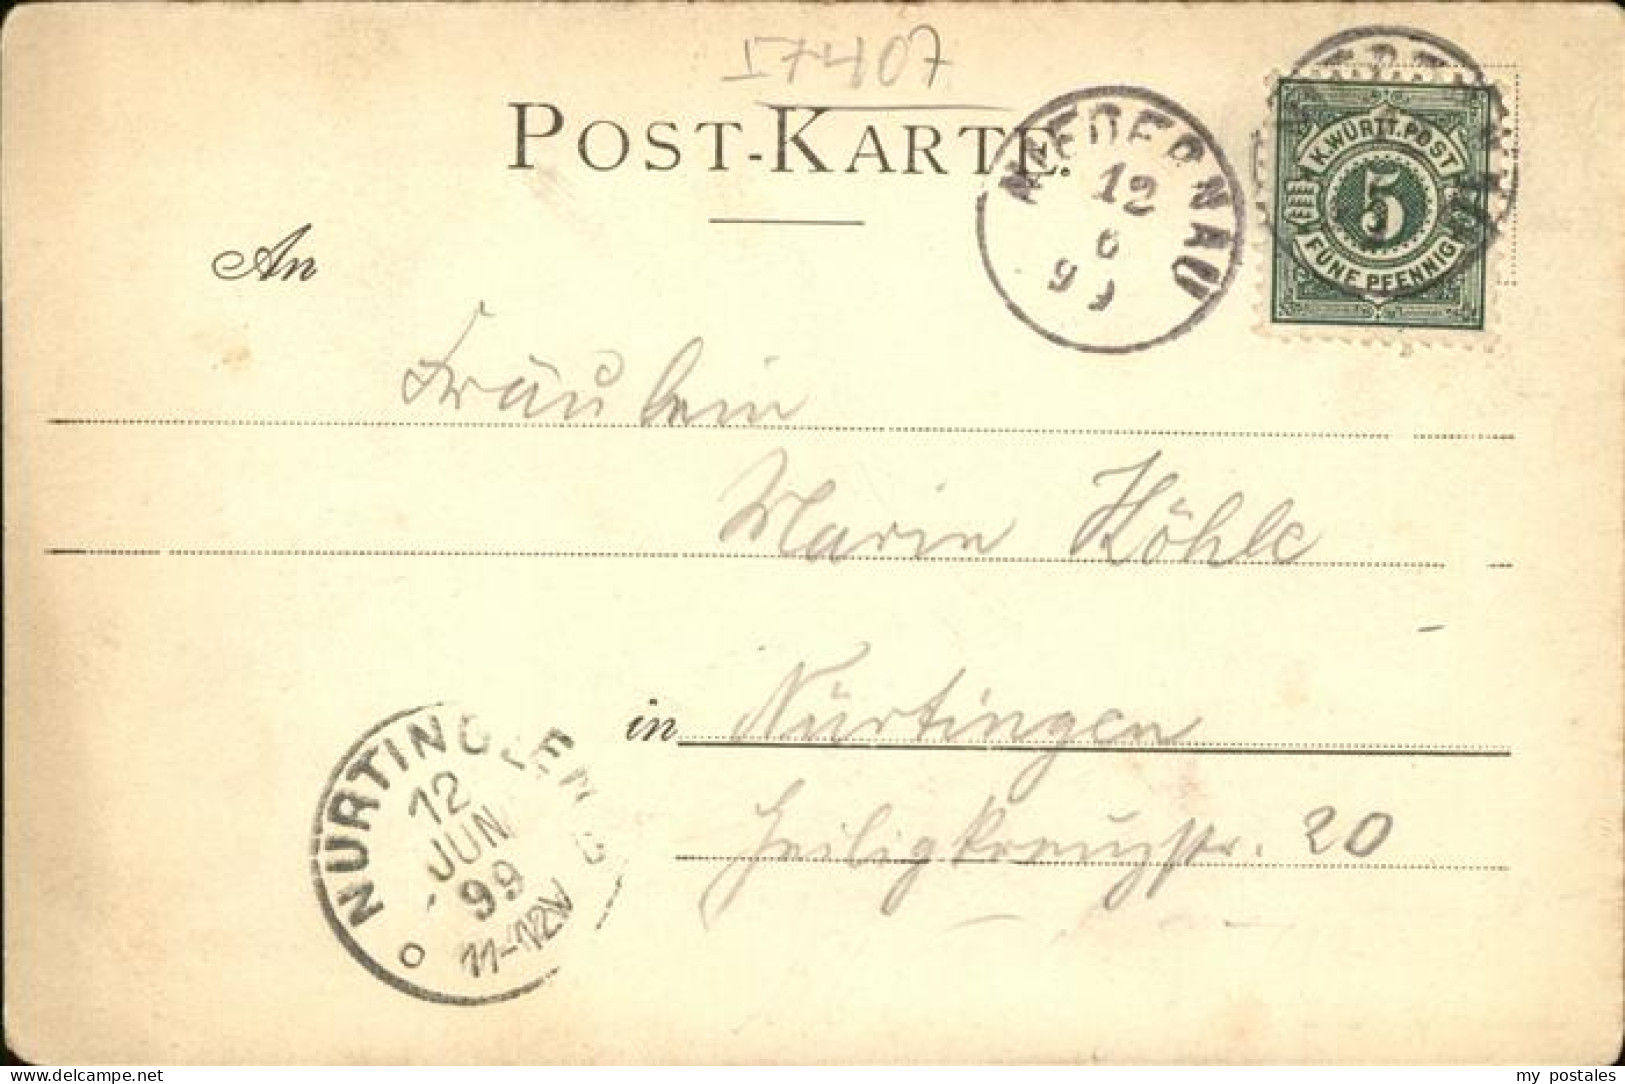 17407
POST-KARTE.
NIEDERNAU
12
6
99
K.WÜRTT.POST
5
FÜNF PFENNIG
An
Fräulein
Marie Höhle
in Nürtingen
Heiligkreuzstr. 20
NÜRTINGEN
12
JUN
99
11-12V
my postales